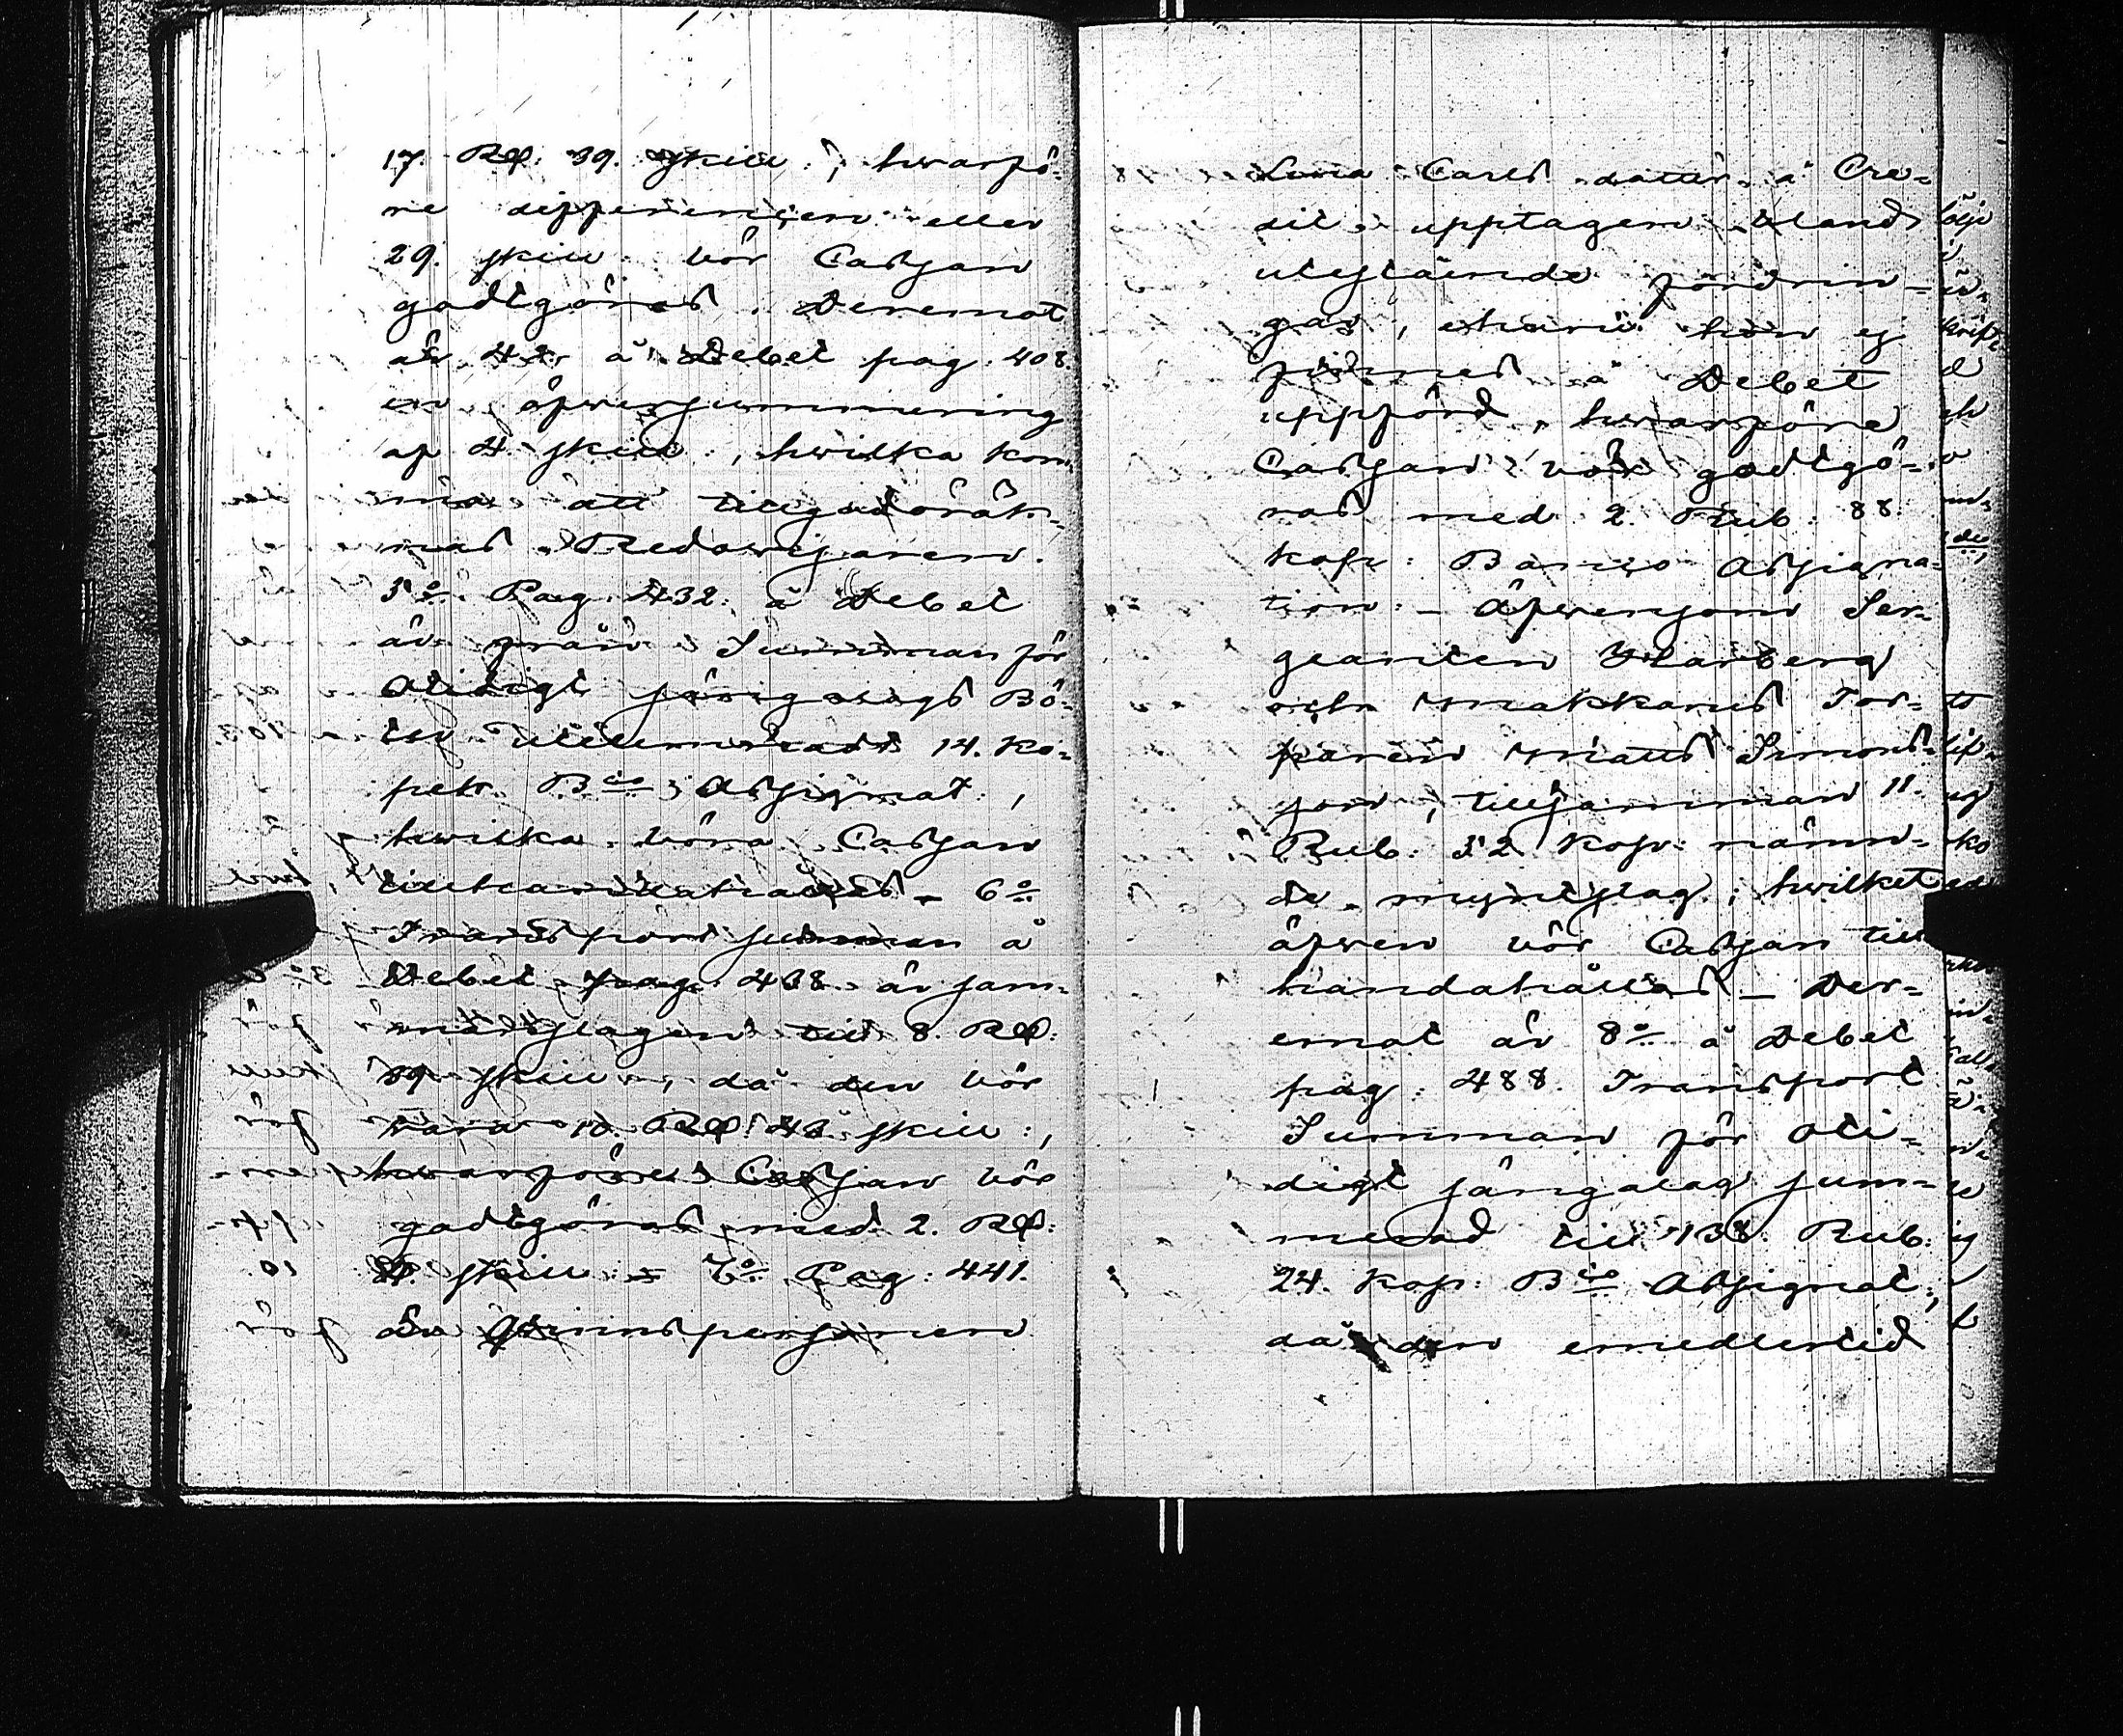 17. Rd. 39. skill:, hwarfö-
re differencen eller
29. skill: bör Cassan
godtgöras. Deremot
är 4:o å Debet pag. 408.
en öfversummering
af 4 skill:, hwilka kom-
ma att tillgodoräk-
nas Redovisaren.
5:o Pag. 432. å Debet
är från Summan för
Otidigt sängalags Bö-
ter uteslemnadt 14. ko-
pek. B:co Assignat:,
hwilka böra Cassan
tillhandahållas - 6:o
Transport summan å
Debet pag. 438. är sam-
manslagen till 8. Rd.
39. skill:, då den bör
vara 10. Rd. 43. skill:,
hwarföre Cassan bör
godtgöras med 2. Rd.
4. skill: - 7:o Pag. 441.
är Qvinspersonen
Carls dotter å Cre-
dit upptagen bland
utestående fordrin-
gar, ehuru hon ej
finnes å Debet
uppförd, hwarföre
Cassan bör godtgö-
ras med 2. Rub. 88.
kop: Banco Assigna-
tion: - Äfvensom Ser-
geanten
och Makkarus Tor-
paren Matts Simons-
son, tillsamman 11.
Rub. 52. kop: nämn-
de myntslag; hwilket
äfven bör Cassan till-
handahållas - Der-
emot är 8:o å Debet
pag: 488. Transport
Summan för oti-
digt sängalag sum-
merad till 138. Rub.
24. kop: B:co Assignat:,
då den emedlertid